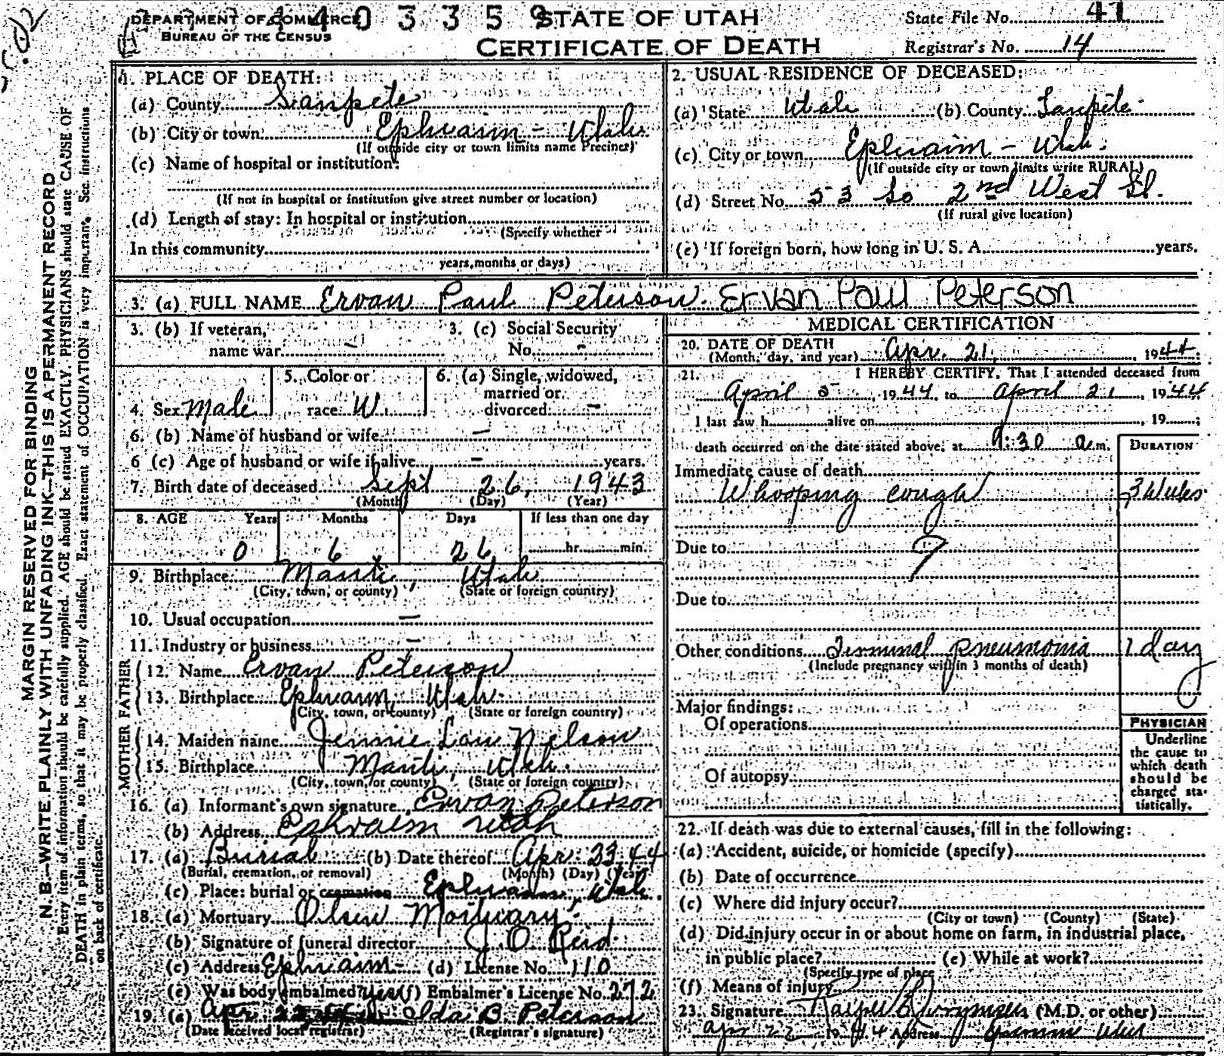 DEPARTMENT OF COMMERCE
BUREAU OF THE CENSUS
140335
STATE OF UTAH
CERTIFICATE OF DEATH
State File No. 41
Registrar's No. 14
MARGIN RESERVED FOR BINDING
N. B.—WRITE PLAINLY WITH UNFADING INK—THIS IS A PERMANENT RECORD
Every item of information should be carefully supplied. AGE should be stated EXACTLY. PHYSICIANS should state CAUSE OF
DEATH in plain terms, so that it may be properly classified. Exact statement of OCCUPATION is very important. See instructions
on back of certificate.
1. PLACE OF DEATH:
(a) County Sanpete
(b) City or town Ephraim - Utah
(If outside city or town limits name Precinct)
(c) Name of hospital or institution:
(If not in hospital or institution give street number or location)
(d) Length of stay: In hospital or institution
(Specify whether
In this community
years, months or days)
2. USUAL RESIDENCE OF DECEASED:
(a) State Utah (b) County Sanpete
(c) City or town Ephraim - Utah.
(If outside city or town limits write RURAL)
(d) Street No. 53 So 2nd West St.
(If rural give location)
(e) If foreign born, how long in U. S. A. years.
3. (a) FULL NAME Ervan Paul Peterson. Ervan Paul Peterson
3. (b) If veteran, name war -
3. (c) Social Security No. -
4. Sex Male
5. Color or race W.
6. (a) Single, widowed, married or divorced —
6. (b) Name of husband or wife —
6 (c) Age of husband or wife if alive - years.
7. Birth date of deceased Sept 26, 1943
(Month) (Day) (Year)
8. AGE Years Months Days If less than one day
0 6 26 hr. min.
9. Birthplace Manti, Utah
(City, town, or county) (State or foreign country)
10. Usual occupation —
11. Industry or business —
FATHER
12. Name Ervan Peterson
13. Birthplace Ephraim, Utah.
(City, town, or county) (State or foreign country)
MOTHER
14. Maiden name Jennie Lou Nelson
15. Birthplace Manti, Utah.
(City, town, or county) (State or foreign country)
16. (a) Informant's own signature Ervan Peterson
(b) Address Ephraim Utah
17. (a) Burial (b) Date thereof Apr 23 44
(Burial, cremation, or removal) (Month) (Day) (Year)
(c) Place: burial or cremation Ephraim, Utah.
18. (a) Mortuary Olsen Mortuary.
(b) Signature of funeral director J. O. Reid.
(c) Address Ephraim - (d) License No. 110
(e) Was body embalmed? yes (f) Embalmer's License No. 272
19. (a) Apr 22 Ida B. Peterson
(Date received local registrar) (Registrar's signature)
MEDICAL CERTIFICATION
20. DATE OF DEATH
(Month, day, and year) Apr. 21, 1944
21. I HEREBY CERTIFY, That I attended deceased from
April 5, 1944, to April 21, 1944
I last saw h alive on , 19
death occurred on the date stated above, at 9:30 a.m.
DURATION
Immediate cause of death
Whooping cough 3 weeks
Due to ?
Due to
Other conditions Terminal pneumonia 1 day
(Include pregnancy within 3 months of death)
Major findings:
Of operations
Of autopsy
PHYSICIAN
Underline
the cause to
which death
should be
charged sta-
tistically.
22. If death was due to external causes, fill in the following:
(a) Accident, suicide, or homicide (specify)
(b) Date of occurrence
(c) Where did injury occur?
(City or town) (County) (State)
(d) Did injury occur in or about home on farm, in industrial place,
in public place? (e) While at work?
(Specify type of place
(f) Means of injury
23. Signature (M.D. or other)
Apr 22 1944 Address Ephraim Utah